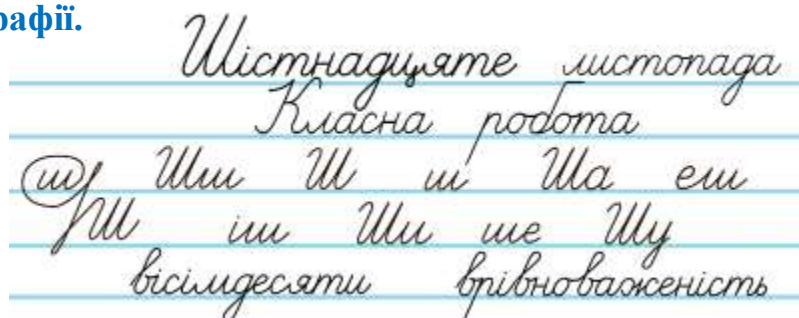 рафії.
Шістнадцяте листопада
Класна робота
ш Шш Ш ш Ша еш
Ш іш Ши ше Шу
вісімдесяти врівноваженість